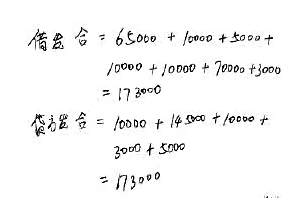 借发合 = 65000 + 10000 + 5000 +
10000 + 10000 + 70000 + 3000
= 173000
贷方发合 = 10000 + 145000 + 10000 +
3000 + 5000
= 173000